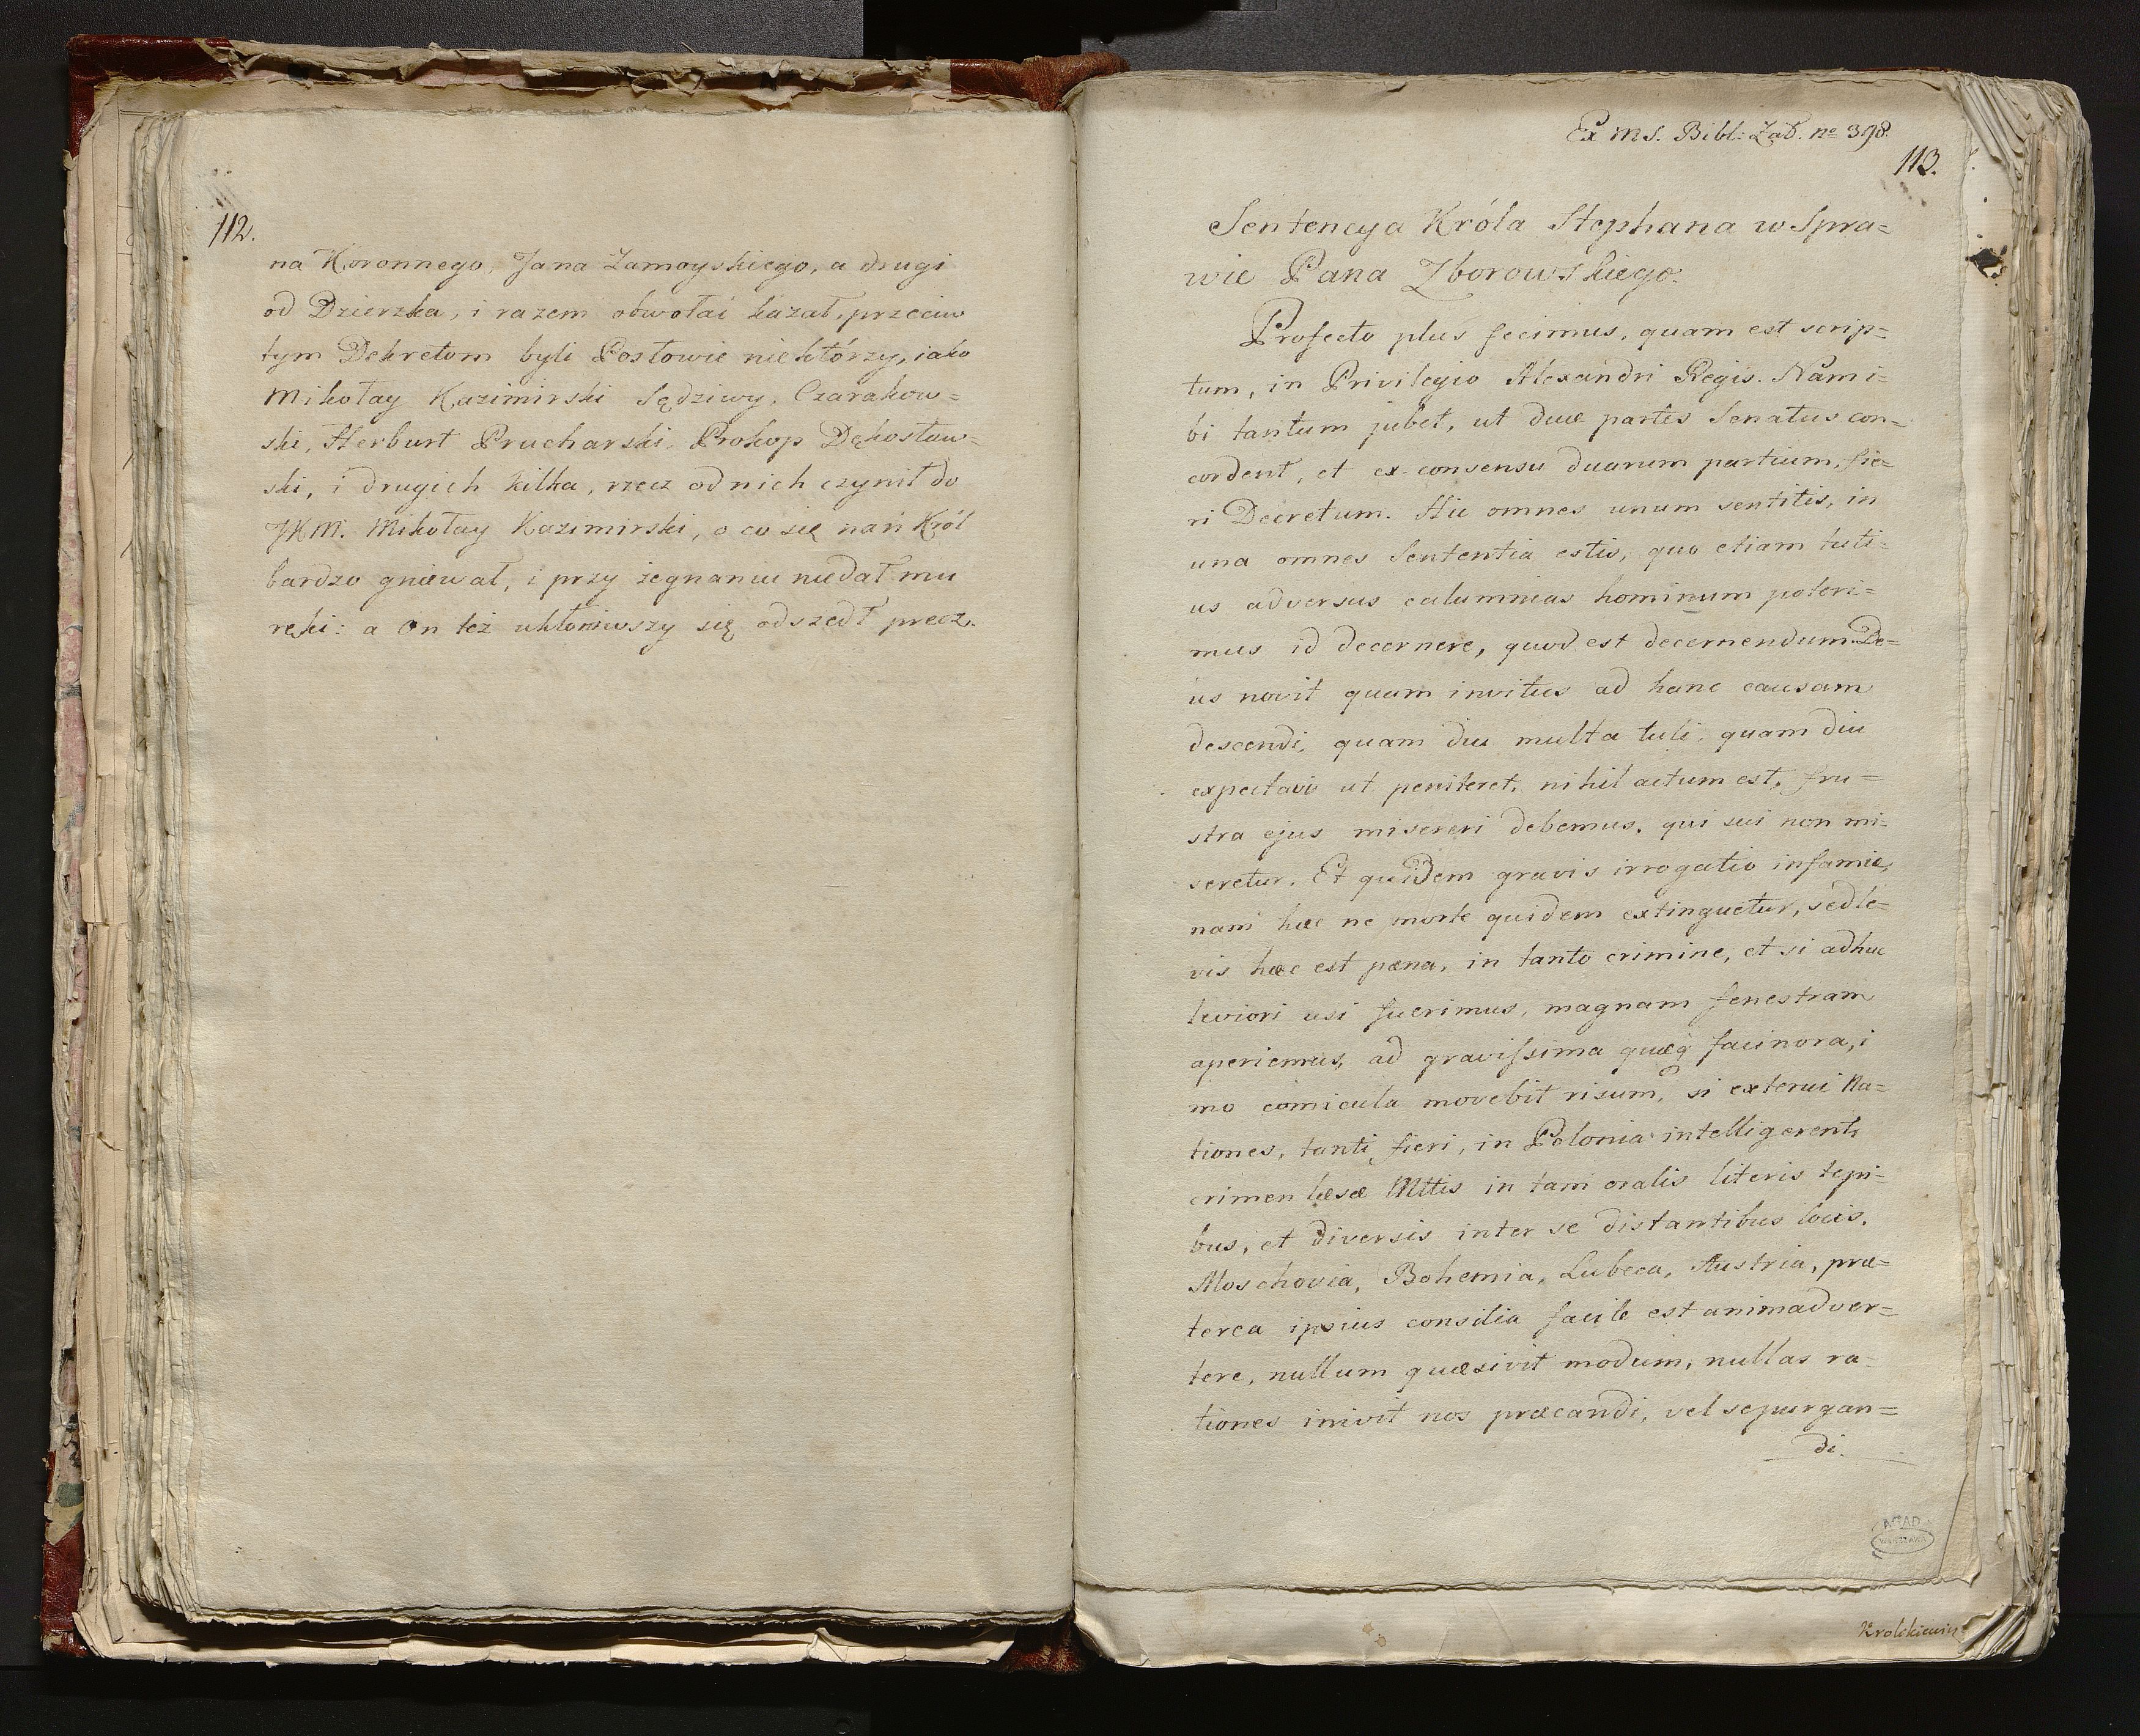 112.
na Koronnego, Jana Zamoyskiego, a drugi
od Dzierzka, i razem obwołać kazał, przeciw
tym Dekretom byli Posłowie niektórzy, iako
Mikołay Kazimirski Sędziwy, Czarnkow=
ski, Herburt Prucharski, Prokop Dękosław=
ski, i drugich kilka, rzecz od nich czynił do
JKM. Mikołay Kazimirski, o co się nań Król
bardzo gniewał, i przy żegnaniu niedał mu
ręki: a On też ukłoniwszy się odszedł precz.
Ex ms. Bibl: Zał. no 398.
113.
Sentencya Króla Stephana w Spra=
wie Pana Zborowskiego.
Profecto plus fecimus, quam est scrip=
tum, in Privilegio Alexandri Regis. Nam i=
bi tantum jubet, ut duæ partes Senatus con=
cordent, et ex consensu duarum partium, fie=
ri Decretum. Hic omnes unum sentitis, in
una omnes Sententia estis, quo etiam tuti=
us adversus calumnias hominum poteri=
mus id decernere, quod est decernendum. De=
us novit quam invitus ad hanc causam
descendi, quam diu multa tuli, quam diu
expectavi ut peniteret, nihil actum est, fru=
stra ejus misereri debemus, qui sui non mi=
seretur. Et quidem gravis irrogatio infamiæ,
nam hæc ne morte quidem extinguetur, sed le=
vis hæc est pæna, in tanto crimine, et si adhuc
leviori usi fuerimus, magnam fenestram
aperiemus, ad gravissima quæq facinora, i
mo cornicula movebit risum, si exterui Na=
tiones, tanti fieri, in Polonia intelligerent,
crimen læsæ Mttis in tam oralis literis tepi=
bus, et diversis inter se distantibus locis,
Moschovia, Bohemia, Lubeca, Austria, præ=
terea ipsius consilia facile est animadver=
tere, nullum quæsivit modum, nullas ra=
tiones inivit nos præcandi, vel se purgan=
di.
AGAD
WARSZAWA